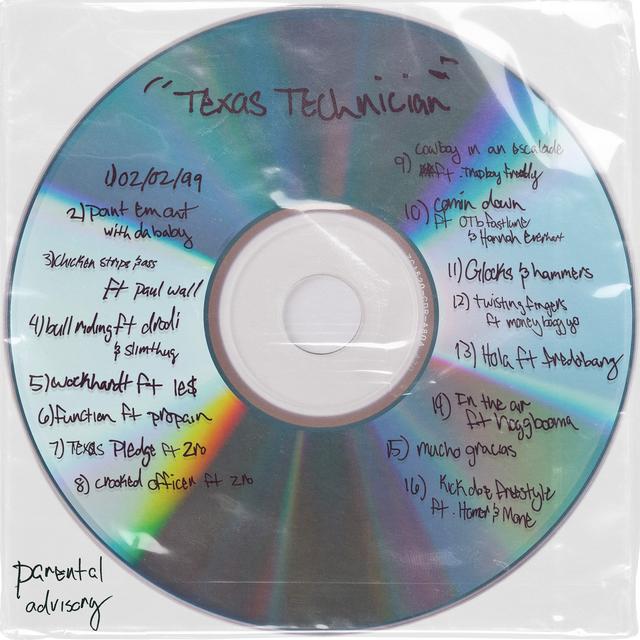 "Texas Technician"
1) 02/02/99
2) point em out
with dababy
3) chicken strips & ass
ft paul wall
4) bull riding ft drodi
& slimthug
5) wockhardt ft le$
6) function ft propain
7) Texas Pledge ft Zro
8) crooked officer ft zro
9) cowboy in an escalade
ft. Trapboy Freddy
10) comin down
ft OTB fastlane
& Hannah Everhart
11) Glocks & hammers
12) twisting fingers
ft moneybagg yo
13) Hola ft fredobang
14) In the air
ft hoggbooma
15) mucho gracias
16) Kickdoe freestyle
ft. Homer & Mone
parental
advisory